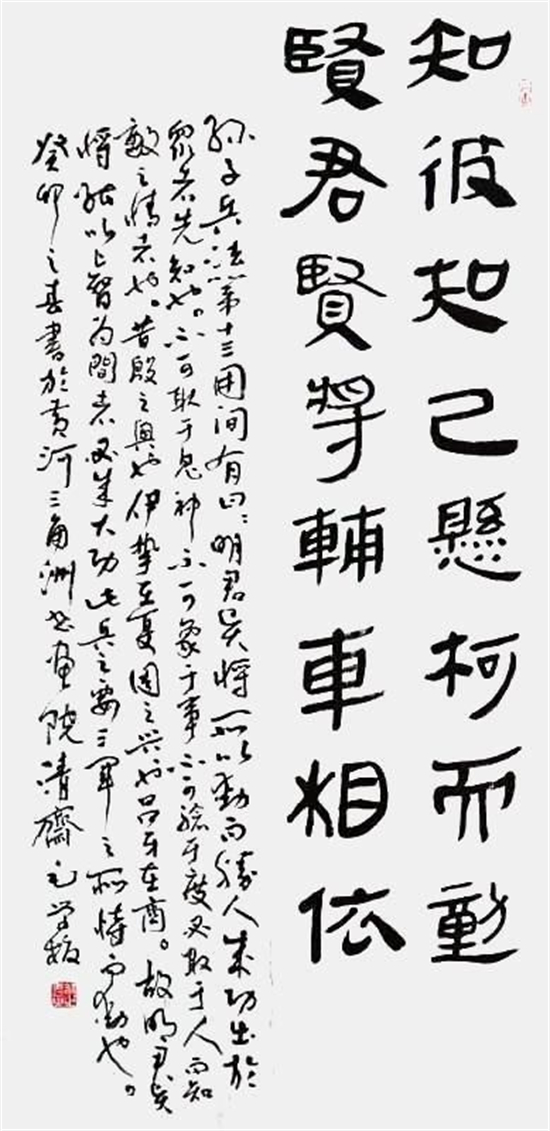 知彼知己懸柯而動
賢君賢將輔車相依
孙子兵法第十三用间有曰：明君贤将所以動而勝人成功出於
眾者先知也。不可取于鬼神不可象于事不可验于度必取于人而知
敵之情者也。昔殷之興也伊挚在夏周之兴也吕牙在商。故明君贤
将能以上智为間者必成大功此兵之要三軍之所恃而動也。
癸卯之春書於黄河三角洲书画院清齋毛